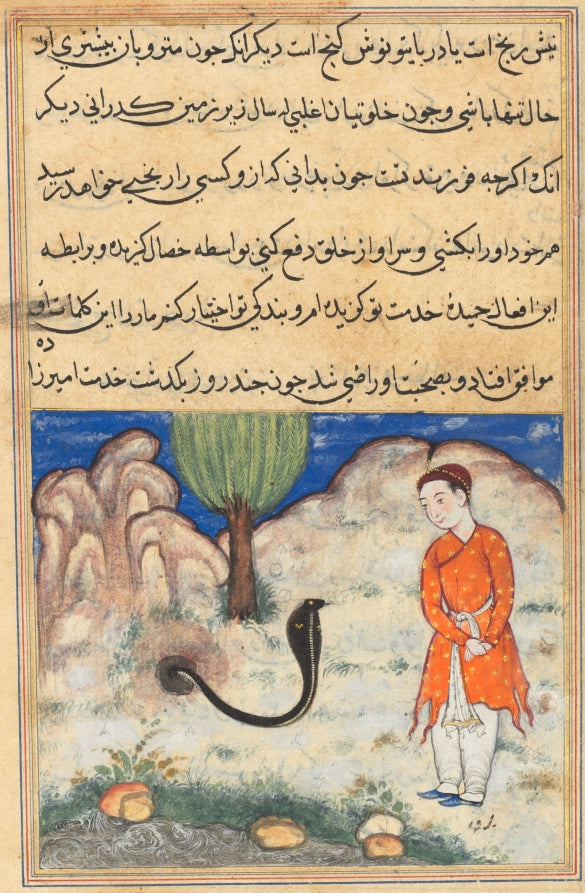 نیش رنج است یا در پایتو نوش کنج است دیکر انک جون متروبان بیشتری از
حال تنها باشی و جون خلوتیان اغلبی له سال زیر زمین کدرانی دیکر
انک اکرجه فرزند تست جون بدانی که از و کسی را رنجی خواهد رسید
هم خود او را بکشی و سر او از خلق دفع کنی بواسطه خصال کزیده و برابطه
این افعال حمیده خدمت تو کزیده ام و بندکی تو اختیار کنم مار را این کلمات او
ده
موافق افتاد و بصحبت او راضی شد جون جند روز بکدشت خدمت امیرزا